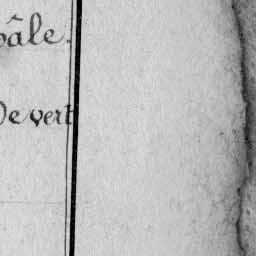 bâle.
De vert